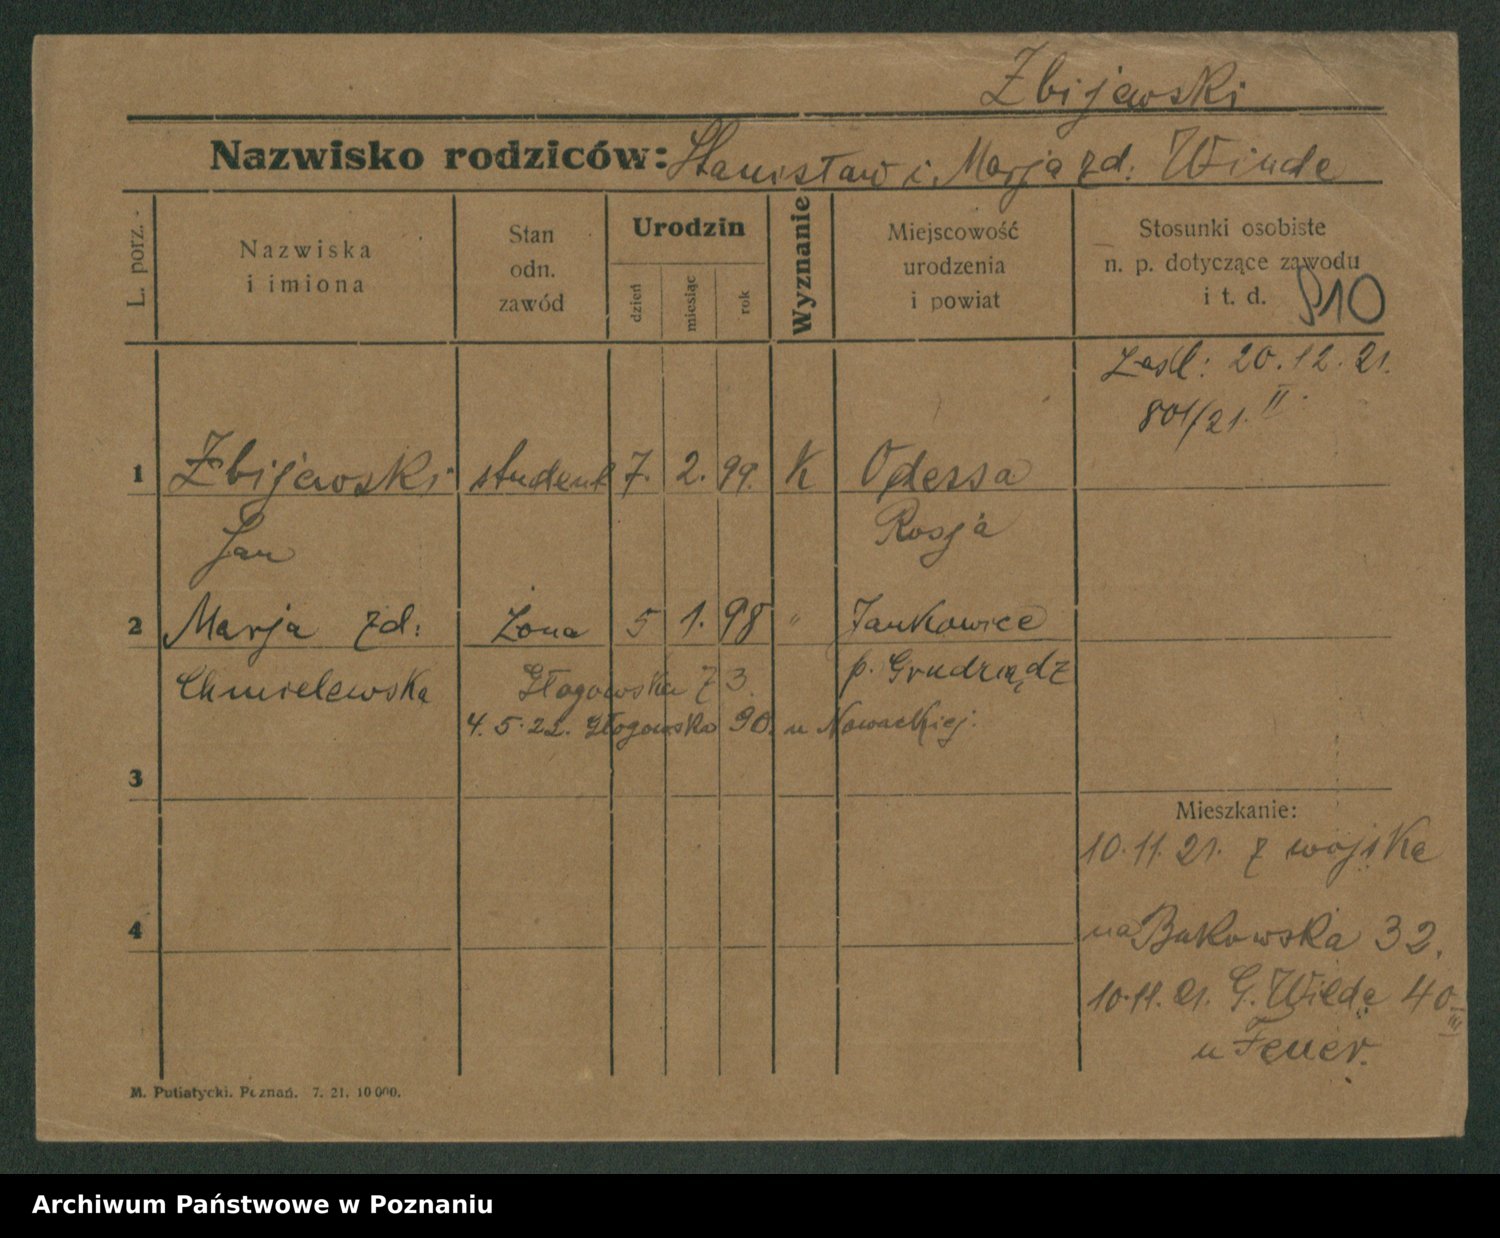 Zbijewski
Nazwisko rodziców: Stanisław i Marja zd: Winde
L. porz.
Nazwiska
i imiona
Stan
odn.
zawód
Urodzin
dzień
miesiąc
rok
Wyznanie
Miejscowość
urodzenia
i powiat
Stosunki osobiste
n. p. dotyczące zawodu
i t. d.
10
Zaśl: 20.12.21.
801/21. II.
1 Zbijewski student 7. 2. 99. K Odessa
Jan Rosja
2 Marja zd: żona 5 1. 98 " Jankowice
Chmielewska Głogowska 73. p. Grudziądz
4.5.22. Głogowska 90. u Nowackiej.
3
Mieszkanie:
10.11.21. z wojska
4
na Bukowska 32.
10.11.21. G. Wilda 40 III
u Feuer.
M. Putiatycki. Poznań. 7. 21. 10 000.
Archiwum Państwowe w Poznaniu